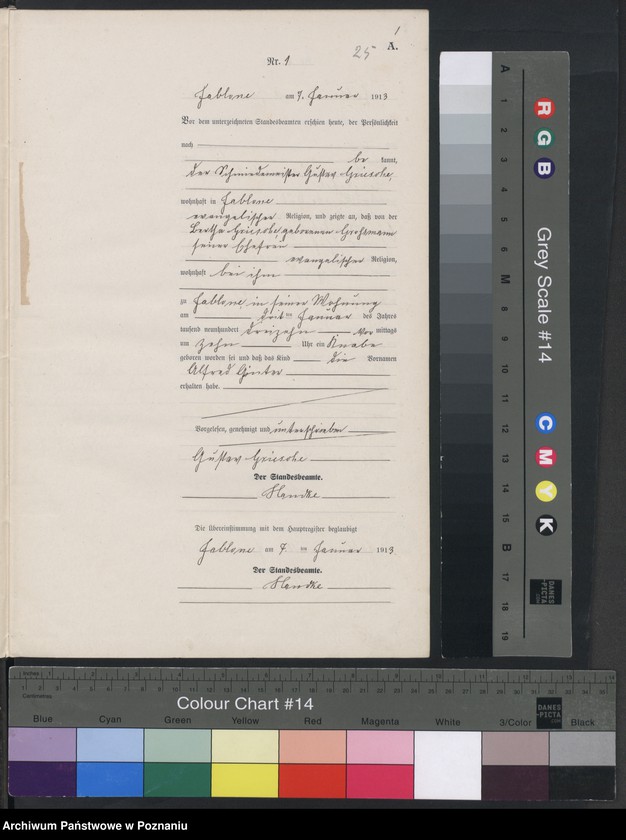 1
25 A.
Nr. 1
Jablone am 7. Januar 1913
Vor dem unterzeichneten Standesbeamten erschien heute, der Persönlichkeit
nach
be kannt,
der Schmiedemeister Gustav Griesche,
wohnhaft in Jablone
evangelischer Religion, und zeigte an, daß von der
Bertha Griesche geborenen Großmann
seiner Ehefrau
evangelischer Religion,
wohnhaft bei ihm
zu Jablone, in seiner Wohnung
am ten Januar des Jahres
tausend neunhundert dreizehn Vor mittags
um zehn Uhr ein Knabe
geboren worden sei und daß das Kind die Vornamen
Alfred Günter
erhalten habe.
Vorgelesen, genehmigt und unterschrieben
Gustav Griesche
Der Standesbeamte.
Die Übereinstimmung mit dem Hauptregister beglaubigt
Jablone am 7. ten Januar 1913
Der Standesbeamte.
A 1 2 3 4 5 6 M 8 9 10 11 12 13 14 15 B 17 18 19
R G B
Grey Scale #14
C M Y K
DANES-PICTA
.COM
Inches
Centimetres
Colour Chart #14
DANES-PICTA
.COM
Blue Cyan Green Yellow Red Magenta White 3/Color Black
Archiwum Państwowe w Poznaniu